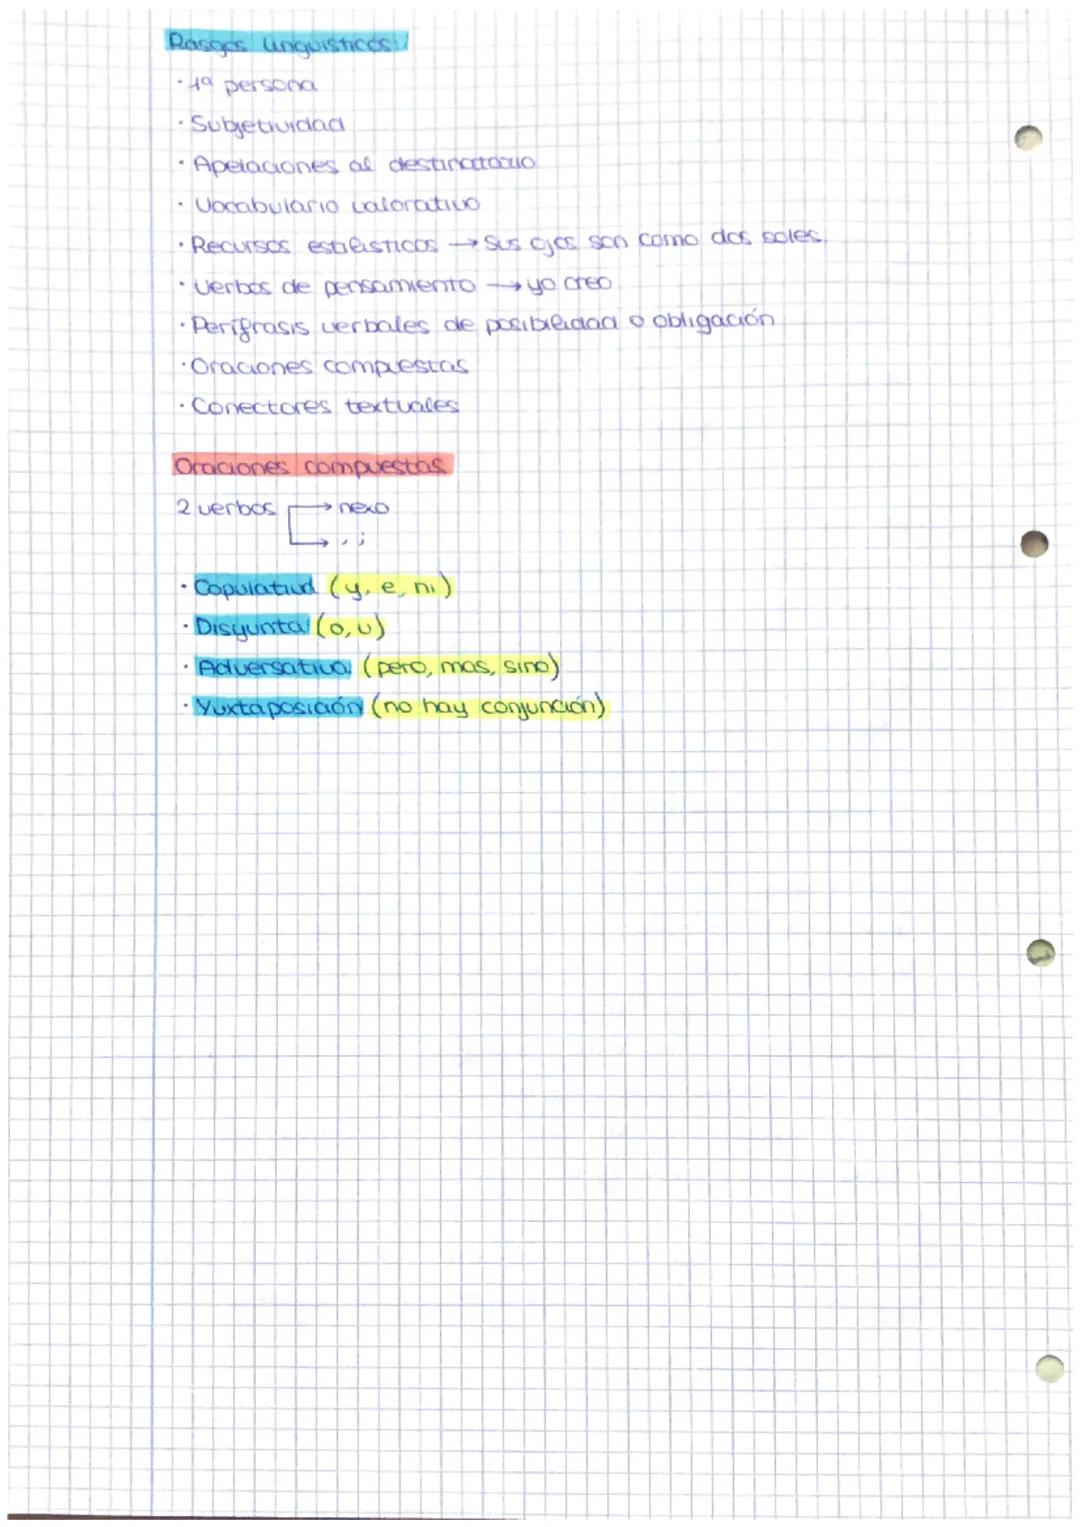 Rasgos lingüísticos:
· 1ª persona
· Subjetividad
· Apelaciones al destinatario
· Vocabulario valorativo
· Recursos estilísticos → Sus ojos son como dos soles.
· Verbos de pensamiento → yo creo
· Perífrasis verbales de posibilidad o obligación
· Oraciones compuestas
· Conectores textuales
Oraciones compuestas
2 verbos → nexo
→ , ;
· Copulativa (y, e, ni)
· Disyunta (o, u)
· Adversativa (pero, mas, sino)
· Yuxtaposición (no hay conjunción)